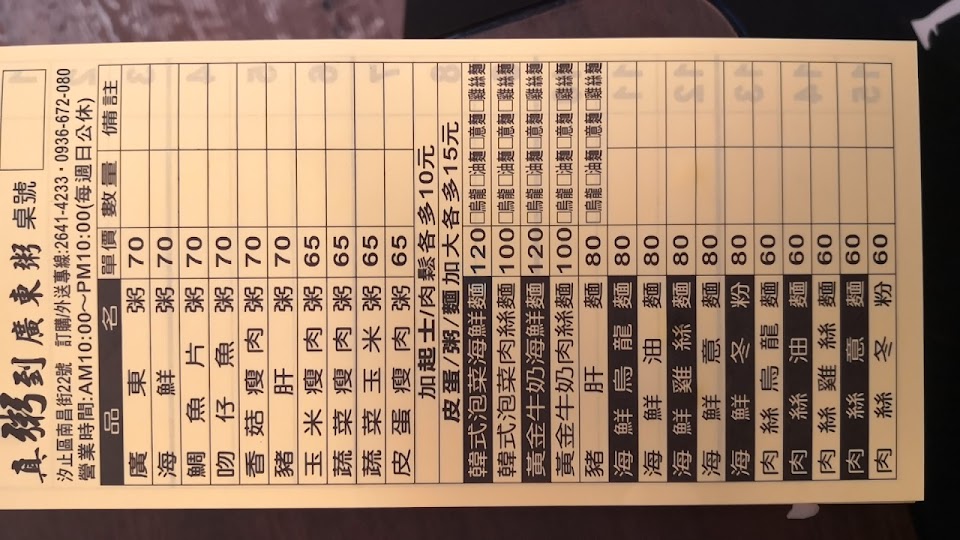 真 粥到 廣東粥 桌號
汐止區南昌街22號 訂購/外送專線:2641-4233・0936-672-080
營業時間:AM10:00～PM10:00(每週日公休)
品名 單價 數量 備註
廣東粥 70
海鮮粥 70
鯛魚片粥 70
吻仔魚粥 70
香菇瘦肉粥 70
豬肝粥 70
玉米瘦肉粥 65
蔬菜瘦肉粥 65
蔬菜玉米粥 65
皮蛋瘦肉粥 65
加起士/肉鬆各多10元
皮蛋/粥/麵加大各多15元
韓式泡菜海鮮麵 120 □烏龍□油麵□意麵□雞絲麵
韓式泡菜肉絲麵 100 □烏龍□油麵□意麵□雞絲麵
黃金牛奶海鮮麵 120 □烏龍□油麵□意麵□雞絲麵
黃金牛奶肉絲麵 100 □烏龍□油麵□意麵□雞絲麵
豬肝麵 80 □烏龍□油麵□意麵□雞絲麵
海鮮烏龍麵 80
海鮮油麵 80
海鮮雞絲麵 80
海鮮意麵 80
海鮮冬粉 80
肉絲烏龍麵 60
肉絲油麵 60
肉絲雞絲麵 60
肉絲意麵 60
肉絲冬粉 60